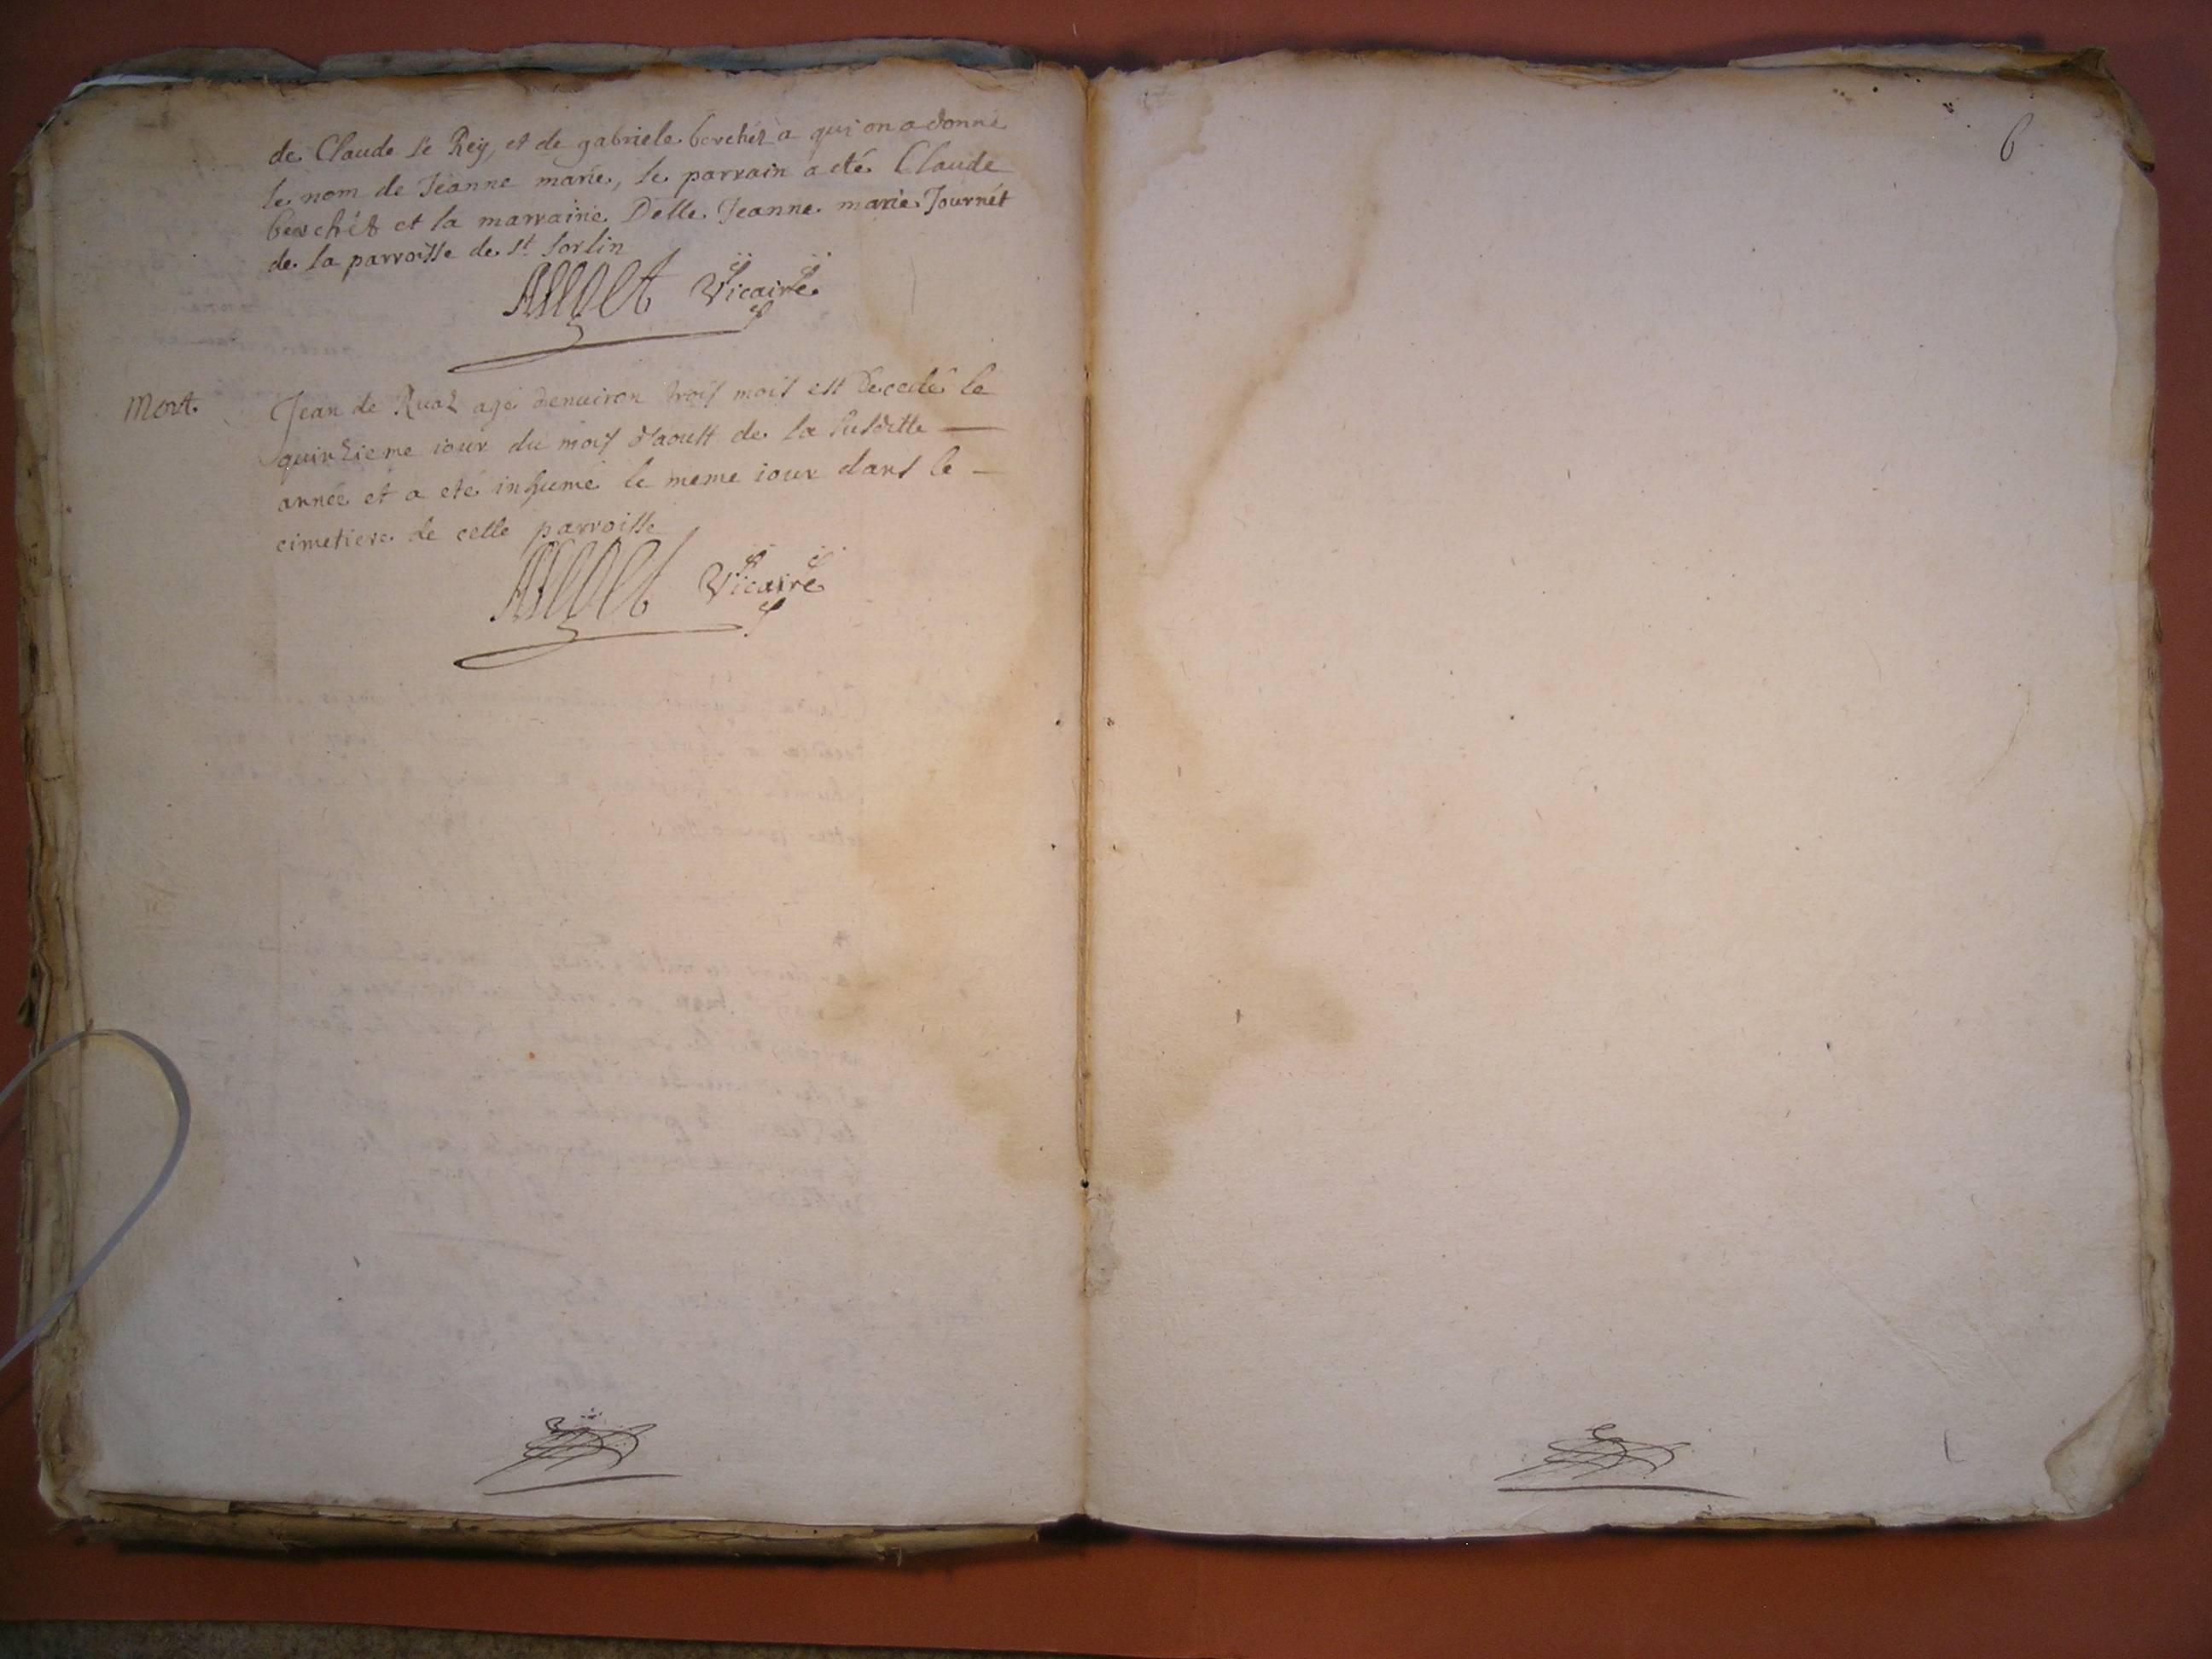 de Claude le Rey, et de gabriele berchét a qui on a donné
le nom de Jeanne marie, le parrain a eté Claude
berchét et la marraine Delle Jeanne marie Journét
de la parroisse de St Sorlin
Vicaire
Mort. Jean de Ruaz agé denuiron trois mois est decedé le
quinzieme iour du mois d'aoust de la susditte
année et a eté inhumé le meme iour dans le
cimetiere de cette parroisse
Vicaire
6